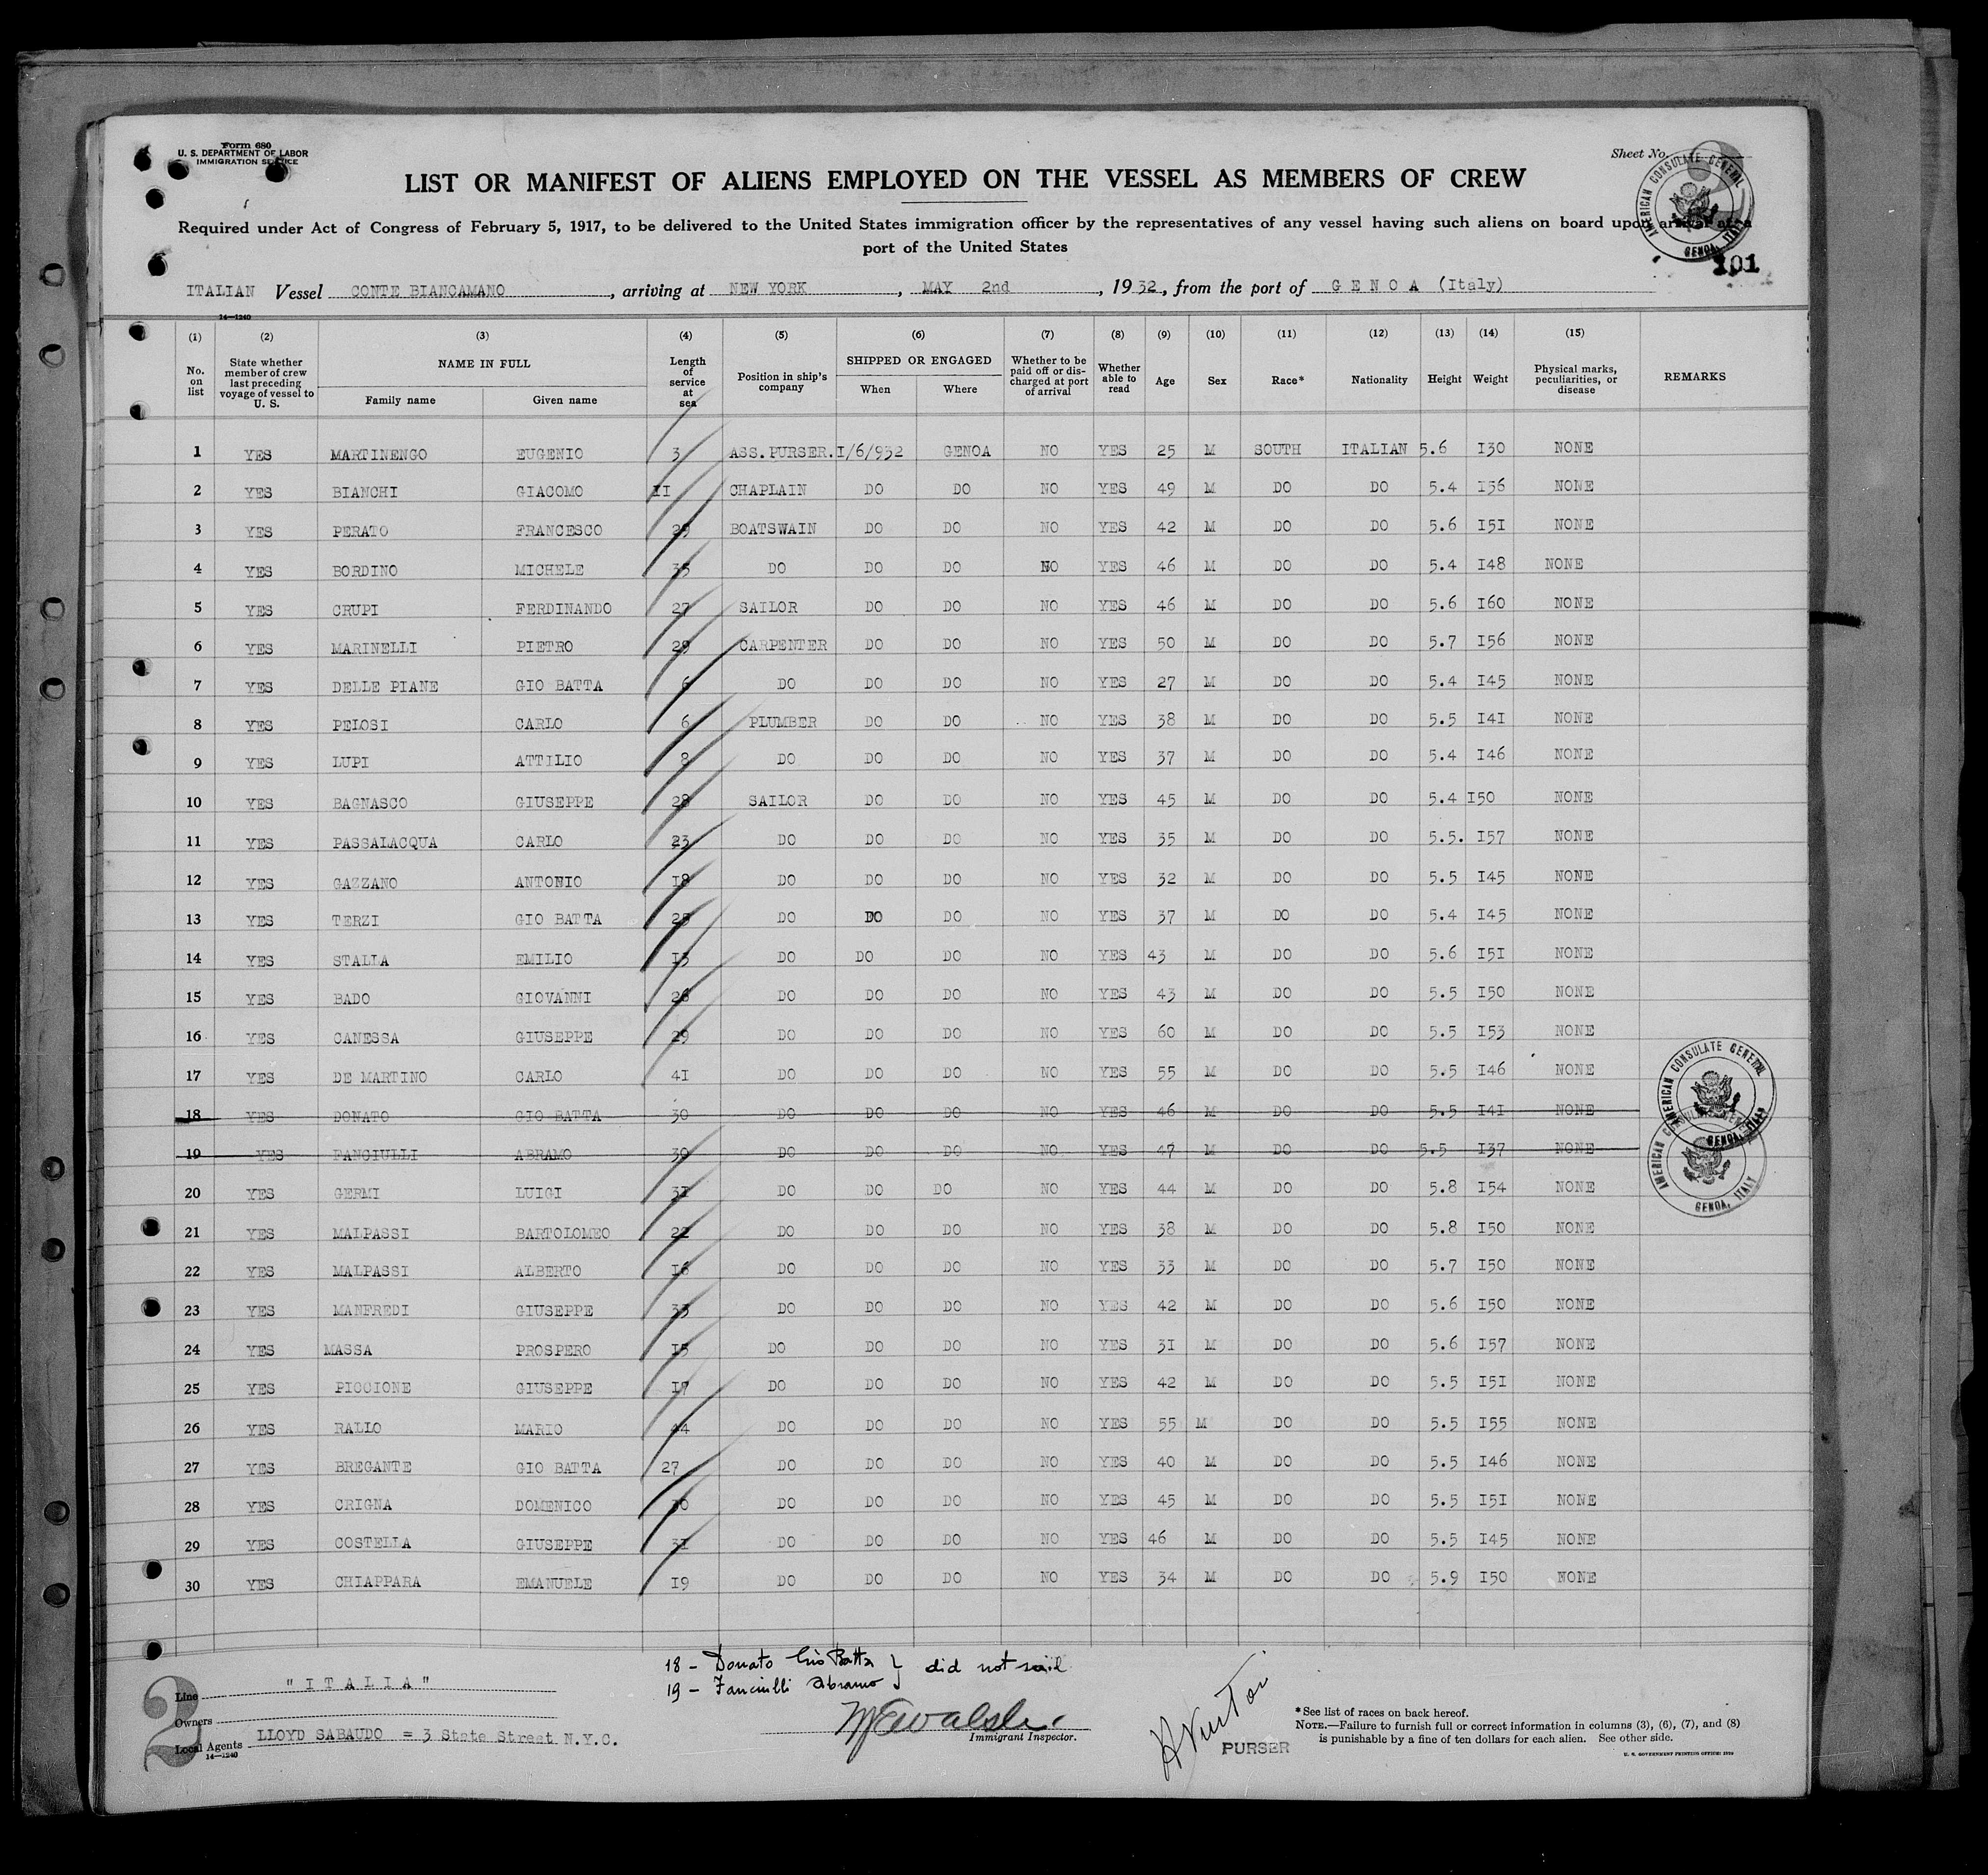 Form 680
U. S. DEPARTMENT OF LABOR
IMMIGRATION SERVICE
Sheet No.
LIST OR MANIFEST OF ALIENS EMPLOYED ON THE VESSEL AS MEMBERS OF CREW
Required under Act of Congress of February 5, 1917, to be delivered to the United States immigration officer by the representatives of any vessel having such aliens on board upon arrival at a
port of the United States
AMERICAN CONSULATE GENERAL GENOA, ITALY
101
ITALIAN Vessel CONTE BIANCAMANO, arriving at NEW YORK, MAY 2nd, 1932, from the port of GENOA (Italy)
14—1240
(1) (2) (3) (4) (5) (6) (7) (8) (9) (10) (11) (12) (13) (14) (15)
No. on list State whether member of crew last preceding voyage of vessel to U. S. NAME IN FULL Family name Given name Length of service at sea Position in ship's company SHIPPED OR ENGAGED When Where Whether to be paid off or discharged at port of arrival Whether able to read Age Sex Race* Nationality Height Weight Physical marks, peculiarities, or disease REMARKS
1 YES MARTINENGO EUGENIO 3 ASS.PURSER. I/6/932 GENOA NO YES 25 M SOUTH ITALIAN 5.6 I30 NONE
2 YES BIANCHI GIACOMO II CHAPLAIN DO DO NO YES 49 M DO DO 5.4 I56 NONE
3 YES PERATO FRANCESCO 29 BOATSWAIN DO DO NO YES 42 M DO DO 5.6 I5I NONE
4 YES BORDINO MICHELE 35 DO DO DO NO YES 46 M DO DO 5.4 I48 NONE
5 YES CRUPI FERDINANDO 27 SAILOR DO DO NO YES 46 M DO DO 5.6 I60 NONE
6 YES MARINELLI PIETRO 29 CARPENTER DO DO NO YES 50 M DO DO 5.7 I56 NONE
7 YES DELLE PIANE GIO BATTA 6 DO DO DO NO YES 27 M DO DO 5.4 I45 NONE
8 YES PELOSI CARLO 6 PLUMBER DO DO NO YES 38 M DO DO 5.5 I4I NONE
9 YES LUPI ATTILIO 8 DO DO DO NO YES 37 M DO DO 5.4 I46 NONE
10 YES BAGNASCO GIUSEPPE 28 SAILOR DO DO NO YES 45 M DO DO 5.4 I50 NONE
11 YES PASSALACQUA CARLO 23 DO DO DO NO YES 35 M DO DO 5.5. I57 NONE
12 YES GAZZANO ANTONIO I8 DO DO DO NO YES 32 M DO DO 5.5 I45 NONE
13 YES TERZI GIO BATTA 25 DO DO DO NO YES 37 M DO DO 5.4 I45 NONE
14 YES STALLA EMILIO I3 DO DO DO NO YES 43 M DO DO 5.6 I5I NONE
15 YES BADO GIOVANNI 26 DO DO DO NO YES 43 M DO DO 5.5 I50 NONE
16 YES CANESSA GIUSEPPE 29 DO DO DO NO YES 60 M DO DO 5.5 I53 NONE
17 YES DE MARTINO CARLO 4I DO DO DO NO YES 55 M DO DO 5.5 I46 NONE
18 YES DONATO GIO BATTA 30 DO DO DO NO YES 46 M DO DO 5.5 I4I NONE
19 YES FANCIULLI ABRAMO 30 DO DO DO NO YES 47 M DO DO 5.5 I37 NONE
20 YES GERMI LUIGI 3I DO DO DO NO YES 44 M DO DO 5.8 I54 NONE
21 YES MALPASSI BARTOLOMEO 22 DO DO DO NO YES 38 M DO DO 5.8 I50 NONE
22 YES MALPASSI ALBERTO I6 DO DO DO NO YES 33 M DO DO 5.7 I50 NONE
23 YES MANFREDI GIUSEPPE 33 DO DO DO NO YES 42 M DO DO 5.6 I50 NONE
24 YES MASSA PROSPERO I5 DO DO DO NO YES 3I M DO DO 5.6 I57 NONE
25 YES PICCIONE GIUSEPPE I7 DO DO DO NO YES 42 M DO DO 5.5 I5I NONE
26 YES RALLO MARIO 44 DO DO DO NO YES 55 M DO DO 5.5 I55 NONE
27 YES BREGANTE GIO BATTA 27 DO DO DO NO YES 40 M DO DO 5.5 I46 NONE
28 YES CRIGNA DOMENICO 30 DO DO DO NO YES 45 M DO DO 5.5 I5I NONE
29 YES COSTELLA GIUSEPPE 3I DO DO DO NO YES 46 M DO DO 5.5 I45 NONE
30 YES CHIAPPARA EMANUELE I9 DO DO DO NO YES 34 M DO DO 5.9 I50 NONE
AMERICAN CONSULATE GENERAL GENOA, ITALY
AMERICAN CONSULATE GENERAL GENOA, ITALY
18 - Donato Gio Batta } did not sail
19 - Fanciulli Abramo
2
Line "ITALIA"
Owners
Local Agents LLOYD SABAUDO = 3 State Street N.Y.C.
14—1240
Walsh
Immigrant Inspector.
PURSER
*See list of races on back hereof.
NOTE.—Failure to furnish full or correct information in columns (3), (6), (7), and (8)
is punishable by a fine of ten dollars for each alien. See other side.
U. S. GOVERNMENT PRINTING OFFICE: